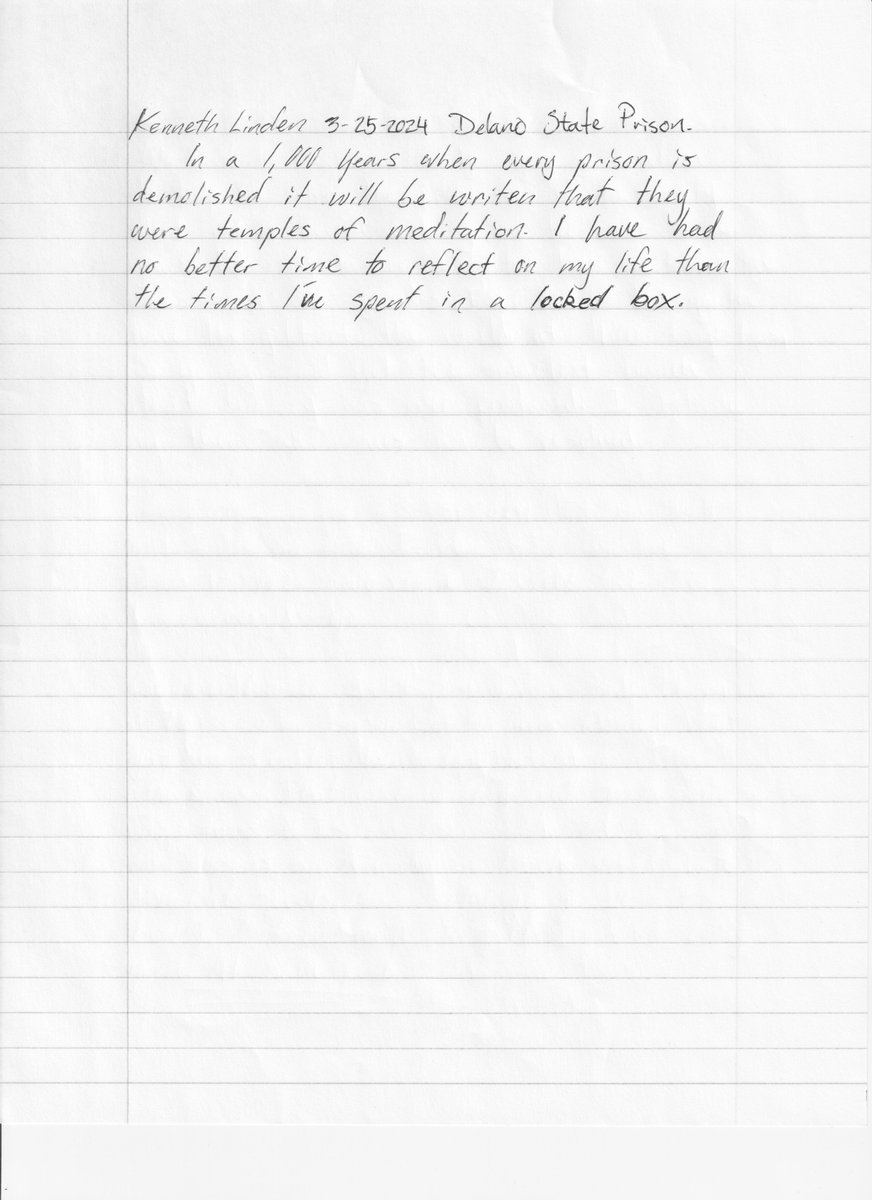 Kenneth Linden 3-25-2024 Delano State Prison.
In a 1,000 years when every prison is
demolished it will be writen that they
were temples of meditation. I have had
no better time to reflect on my life than
the times I've spent in a locked box.